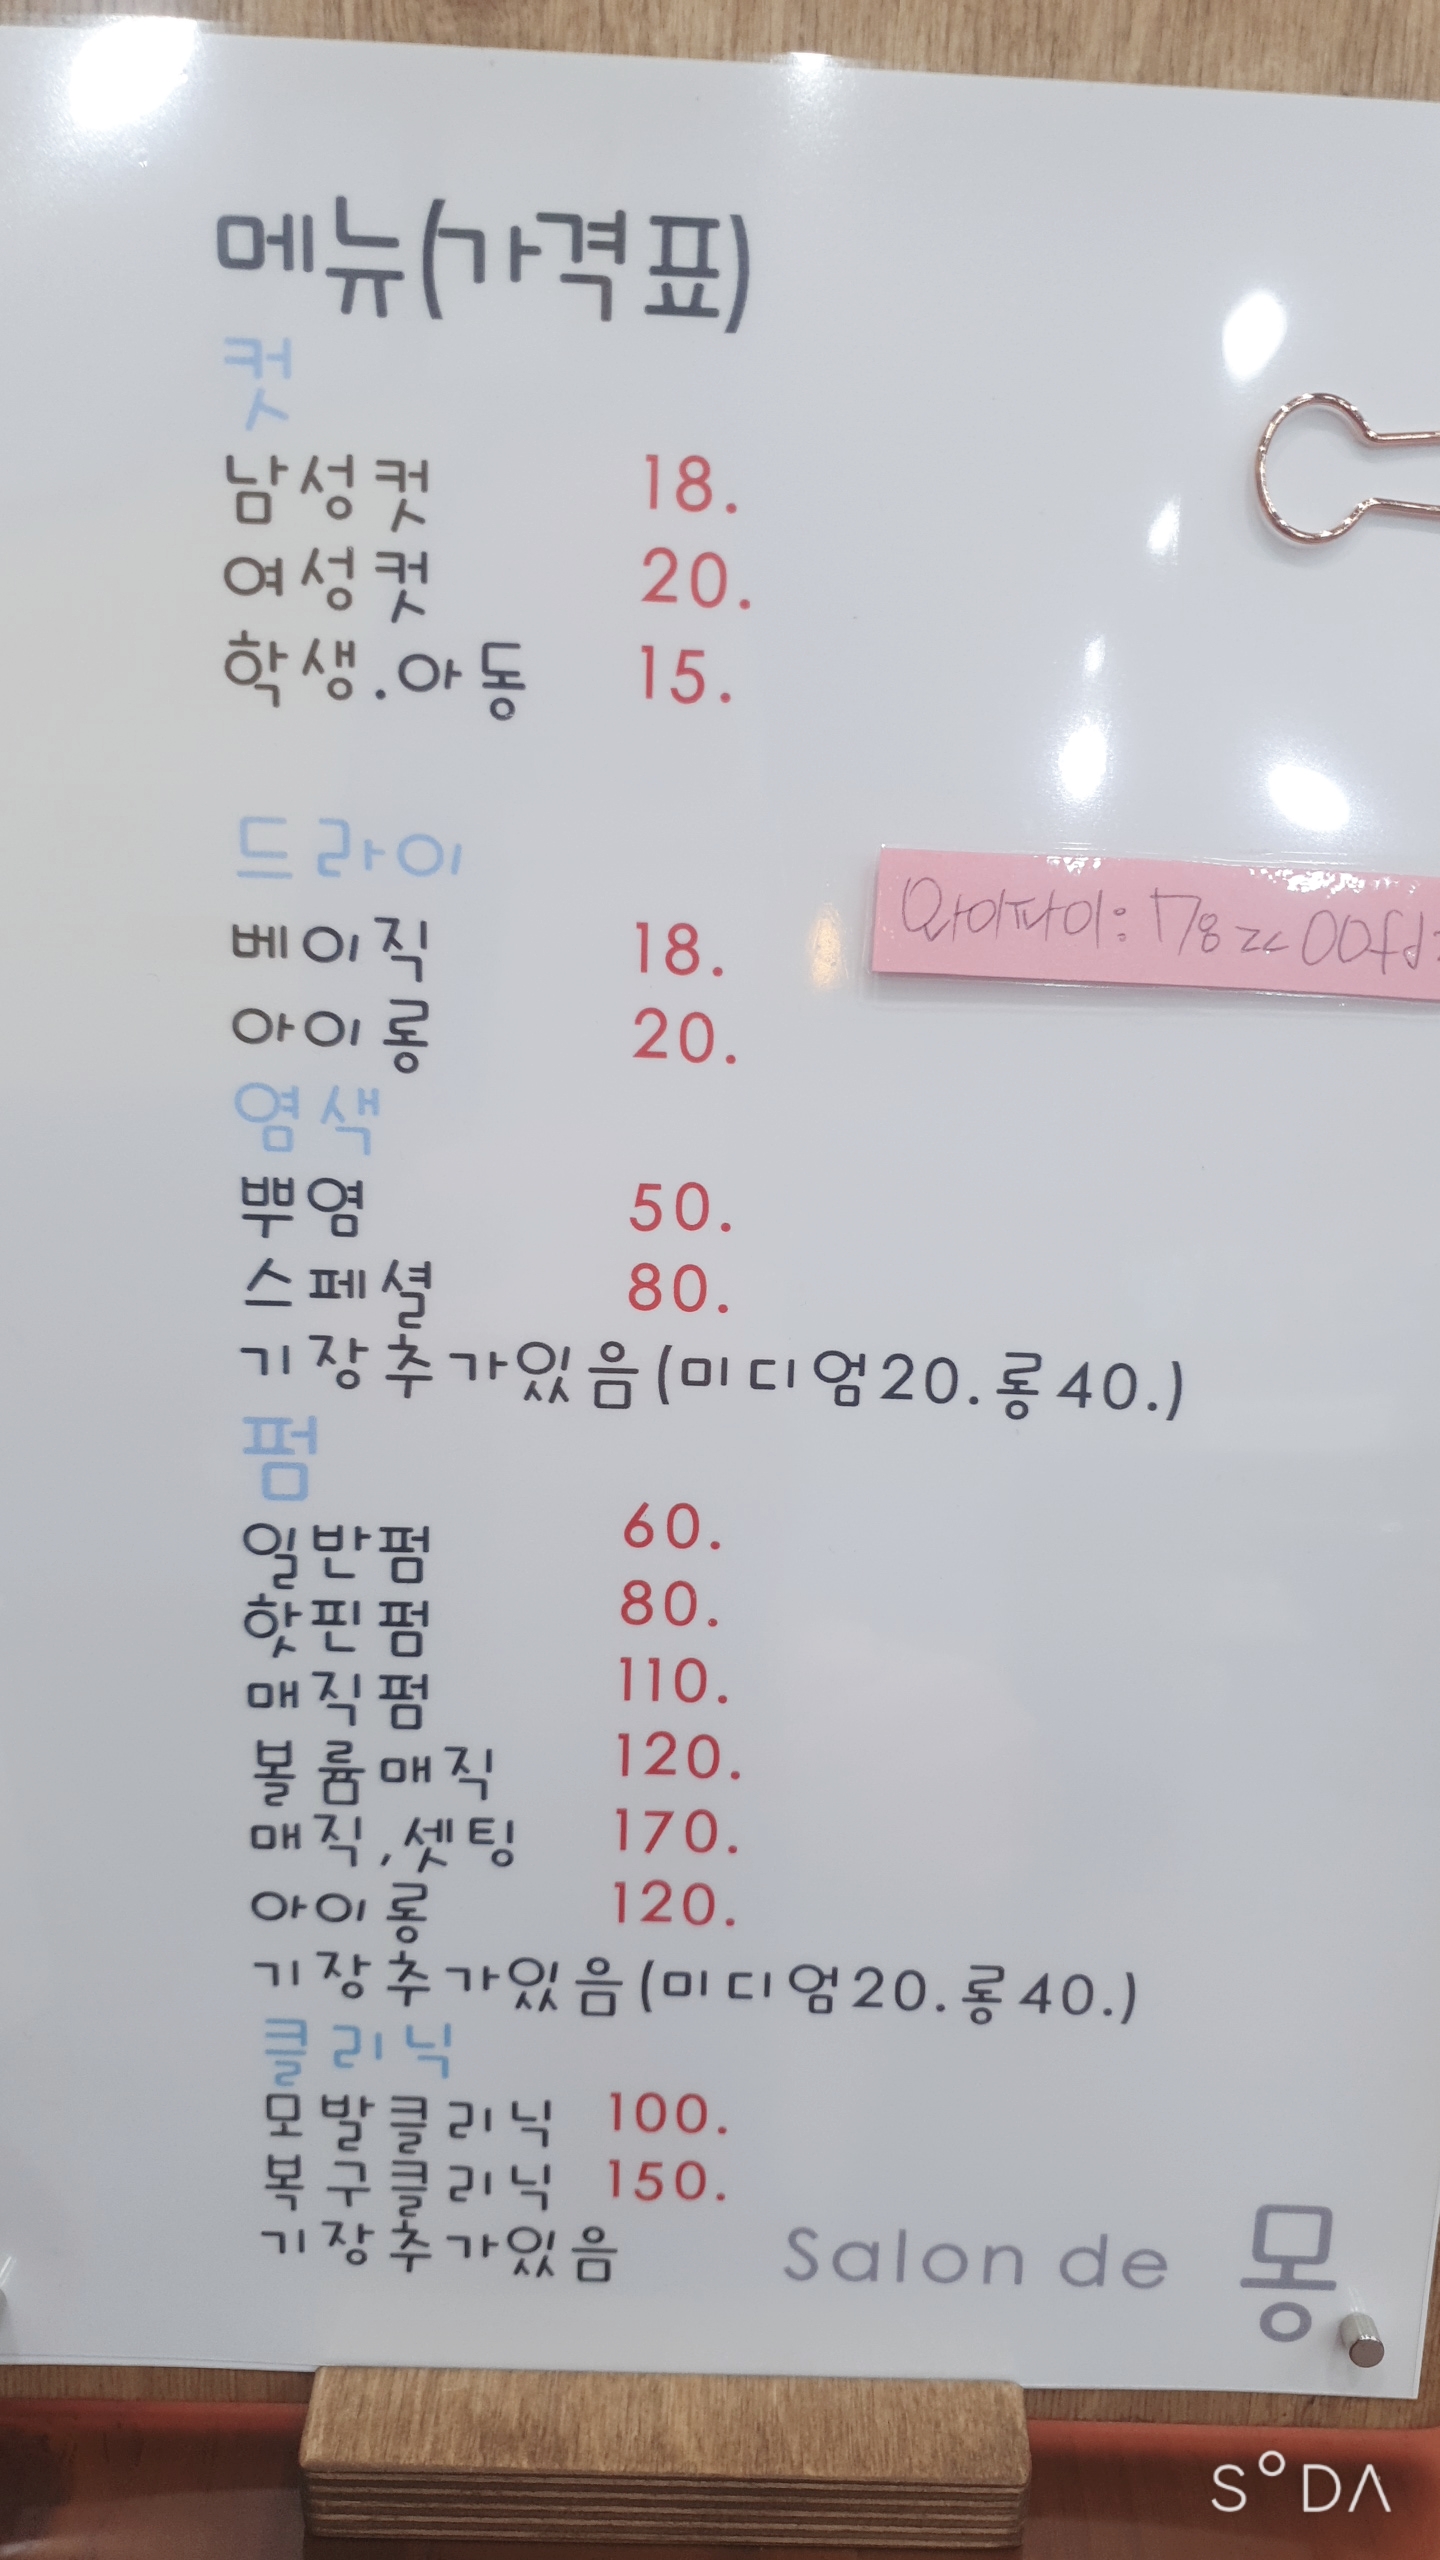 메뉴(가격표)
컷
남성컷 18.
여성컷 20.
학생.아동 15.
드라이
베이직 18.
아이롱 20.
와이파이:
염색
뿌염 50.
스페셜 80.
기장추가있음(미디엄20.롱40.)
펌
일반펌 60.
핫핀펌 80.
매직펌 110.
볼륨매직 120.
매직,셋팅 170.
아이롱 120.
기장추가있음(미디엄20.롱40.)
클리닉
모발클리닉 100.
복구클리닉 150.
기장추가있음
Salon de 몽
SODA